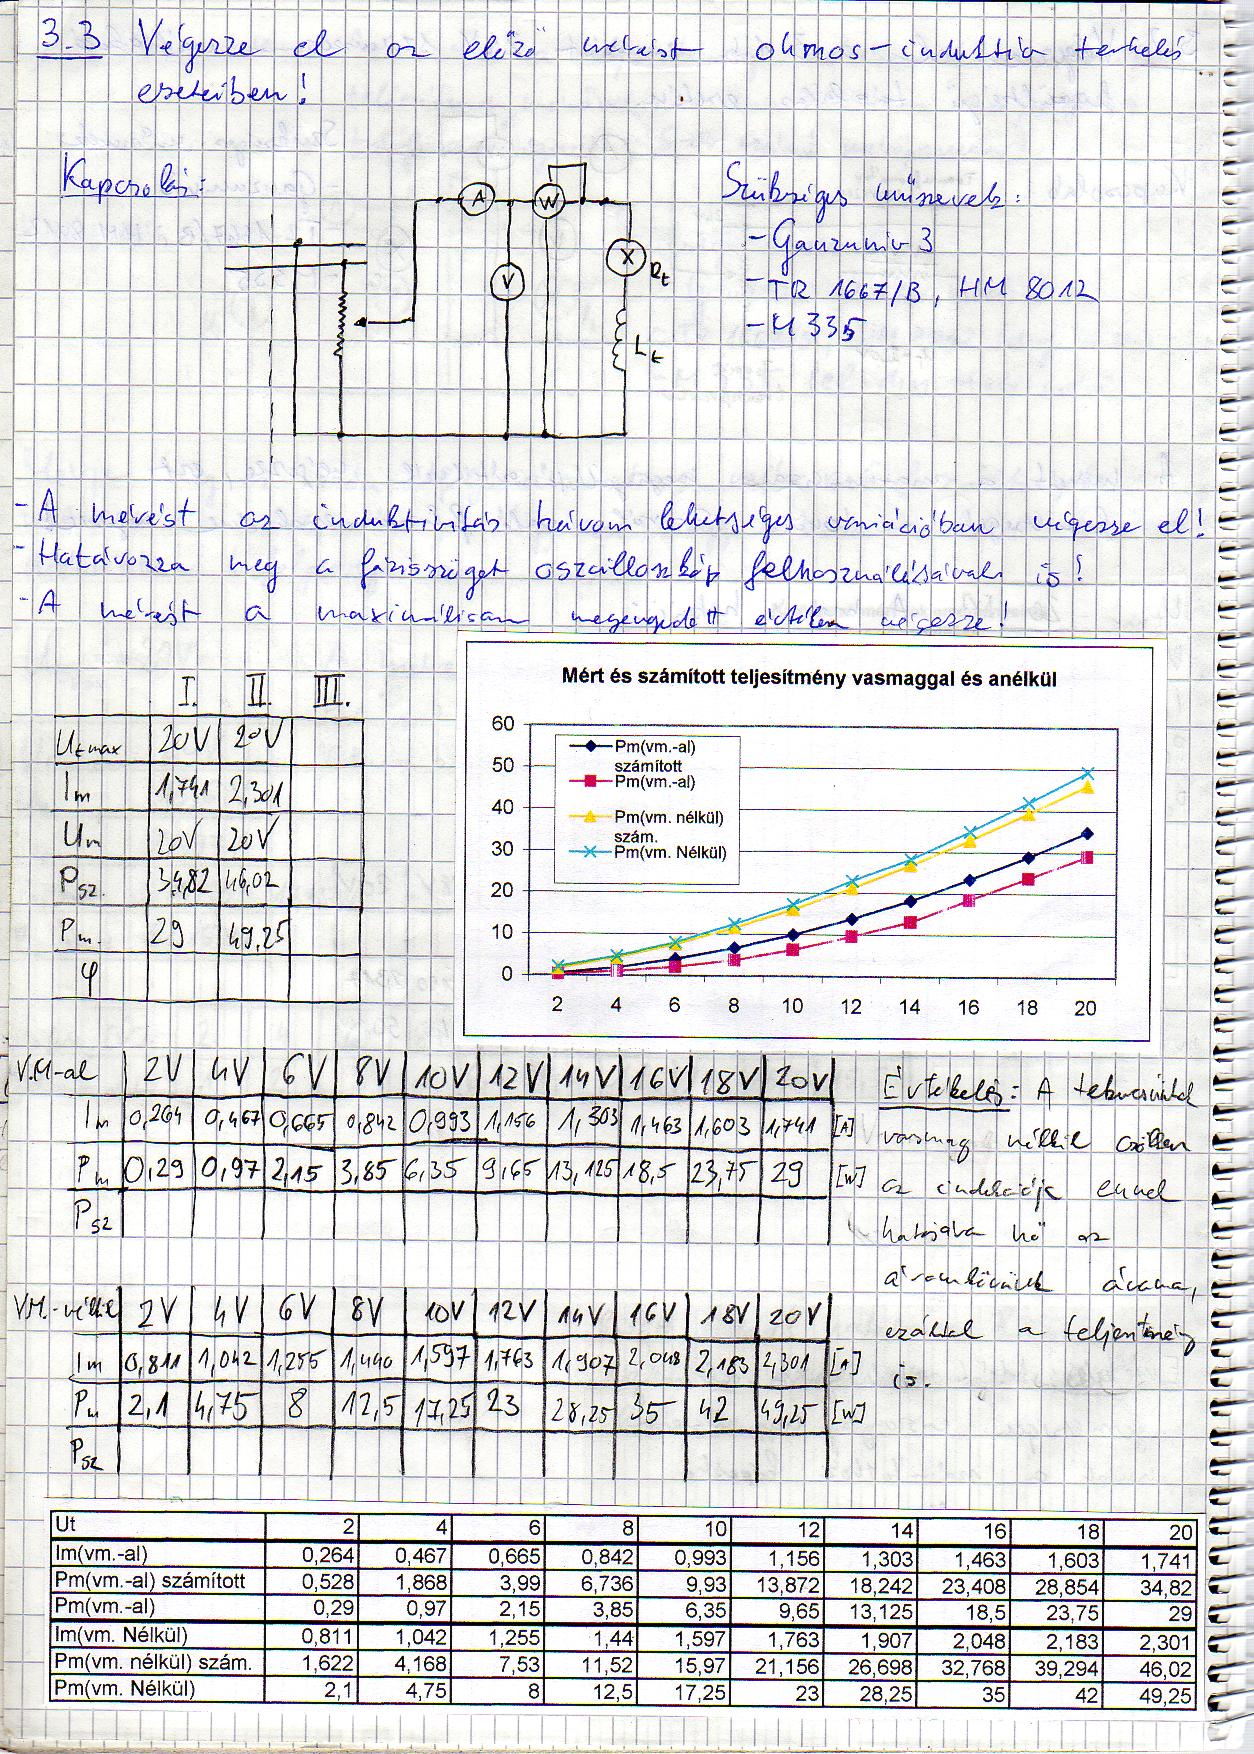 3.3 Végezze el az előző mérést ohmos-induktív terhelés
esetében!
Kapcsolás:
Szükséges műszerek:
A
W
- Ganzuniv 3
V
X
Rt
- TR 1667/B, HM 8012
- M 335
Lt
- A mérést az induktivitás három lehetséges variációban végezze el!
- Határozza meg a fázisszöget oszcilloszkóp felhasználásával is!
- A mérést a maximálisan megengedett értéken végezze!
Mért és számított teljesítmény vasmaggal és anélkül
60
50
40
30
20
10
0
Pm(vm.-al)
számított
Pm(vm.-al)
Pm(vm. nélkül)
szám.
Pm(vm. Nélkül)
2 4 6 8 10 12 14 16 18 20
I. II. III.
Utmax 20V 20V
Im 1,741 2,301
Um 20V 20V
Psz. 34,82 46,02
Pm. 29 49,25
φ
V.M-al 2V 4V 6V 8V 10V 12V 14V 16V 18V 20V
Im 0,264 0,467 0,665 0,842 0,993 1,156 1,303 1,463 1,603 1,741 [A]
Pm 0,29 0,97 2,15 3,85 6,35 9,65 13,125 18,5 23,75 29 [W]
Psz
Értékelés: A tekercsünket
vasmag nélkül
az indukciója ennek
hatására nő az
áramkörünk árama,
ezáltal a teljesítmény
is.
VM.-nélkül 2V 4V 6V 8V 10V 12V 14V 16V 18V 20V
Im 0,811 1,042 1,255 1,440 1,597 1,763 1,907 2,048 2,183 2,301 [A]
Pm 2,1 4,75 8 12,5 17,25 23 28,25 35 42 49,25 [W]
Psz
Ut 2 4 6 8 10 12 14 16 18 20
Im(vm.-al) 0,264 0,467 0,665 0,842 0,993 1,156 1,303 1,463 1,603 1,741
Pm(vm.-al) számított 0,528 1,868 3,99 6,736 9,93 13,872 18,242 23,408 28,854 34,82
Pm(vm.-al) 0,29 0,97 2,15 3,85 6,35 9,65 13,125 18,5 23,75 29
Im(vm. Nélkül) 0,811 1,042 1,255 1,44 1,597 1,763 1,907 2,048 2,183 2,301
Pm(vm. nélkül) szám. 1,622 4,168 7,53 11,52 15,97 21,156 26,698 32,768 39,294 46,02
Pm(vm. Nélkül) 2,1 4,75 8 12,5 17,25 23 28,25 35 42 49,25